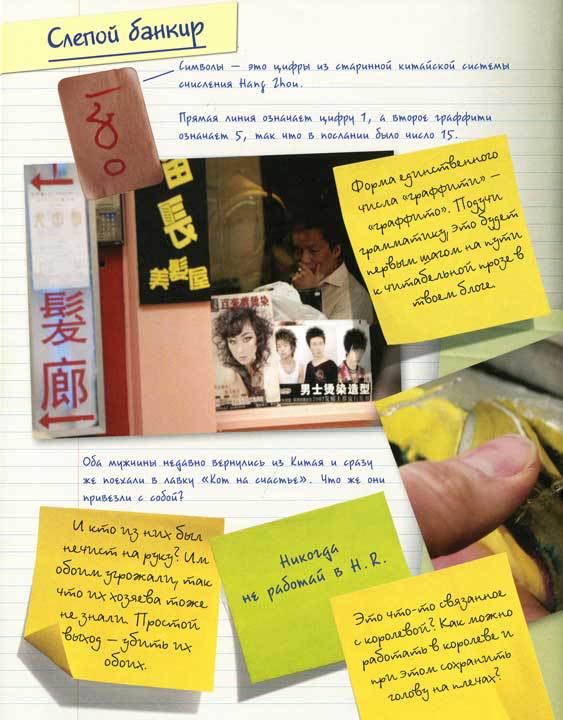 Слепой банкир
Символы — это цифры из старинной китайской системы
счисления Hang Zhou.
Прямая линия означает цифру 1, а второе граффити
означает 5, так что в послании было число 15.
Форма единственного
числа «граффити» —
«граффито». Подучи
грамматику, это будет
первым шагом на пути
к читабельной прозе в
твоем блоге.
髮
廊
長
美髮屋
男士燙染造型
Оба мужчины недавно вернулись из Китая и сразу
же поехали в лавку «Кот на счастье». Что же они
привезли с собой?
И кто из них был
нечист на руку? Им
обоим угрожали, так
что их хозяева тоже
не знали. Простой
выход — убить их
обоих.
Никогда
не работай в H.R.
Это что-то связанное
с королевой? Как можно
работать в королеве и
при этом сохранить
голову на плечах?